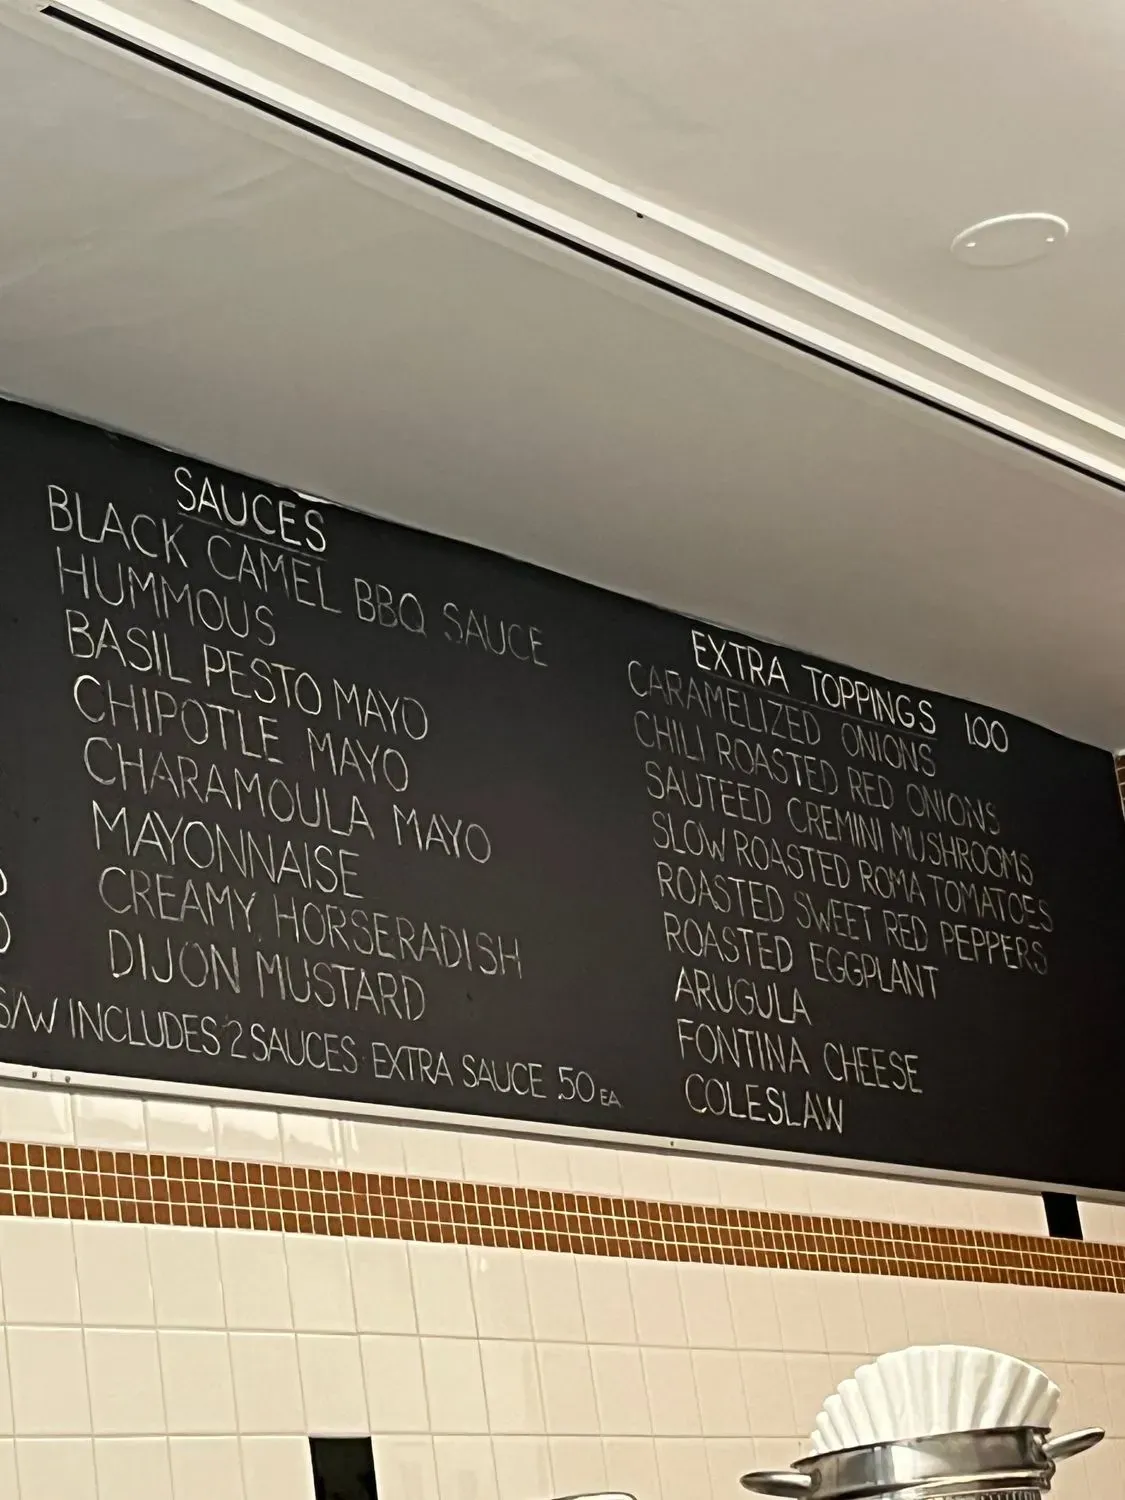 SAUCES
BLACK CAMEL BBQ SAUCE
HUMMOUS
BASIL PESTO MAYO
CHIPOTLE MAYO
CHARAMOULA MAYO
MAYONNAISE
CREAMY HORSERADISH
DIJON MUSTARD
S/W INCLUDES 2 SAUCES EXTRA SAUCE .50 EA
EXTRA TOPPINGS 1.00
CARAMELIZED ONIONS
CHILI ROASTED RED ONIONS
SAUTEED CREMINI MUSHROOMS
SLOW ROASTED ROMA TOMATOES
ROASTED SWEET RED PEPPERS
ROASTED EGGPLANT
ARUGULA
FONTINA CHEESE
COLESLAW